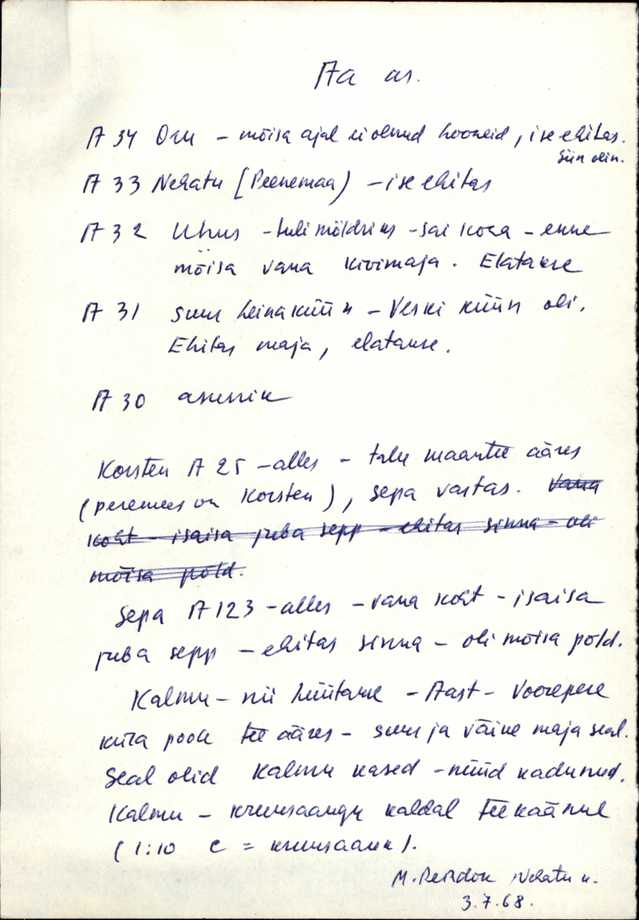 Aa as.
A 34 Oru - mõisa ajal ei olnud hooneid, ise ehitas.
Siin olin.
A 33 Nehatu (Peenemaa) - ise ehitas
A 32 Uhus - tuli möldriks - sai koha - enne
mõisa vana kivimaja. Elatakse
A 31 suur heinaküün - Veski küün oli.
Ehitas maja, elatakse.
A 30 asunik
Korsten A 25 - alles - talu maantee ääres
(peremees on Korsten), sepa vastas. Vana
koht - isaisa juba sepp - ehitas sinna - oli
mõisa põld.
Sepa A 123 - alles - vana koht - isaisa
juba sepp - ehitas sinna - oli mõisa põld.
Kalmu - nii hüütakse - Aast - Voorepere
küla poole tee ääres - suur ja väine maja seal.
Seal olid Kalmu kased - nüüd kadunud.
Kalmu - kruusaaugu kaldal teekäänul
(1:10 c = kruusaauk).
M. Nehatu k.
3.7.68.